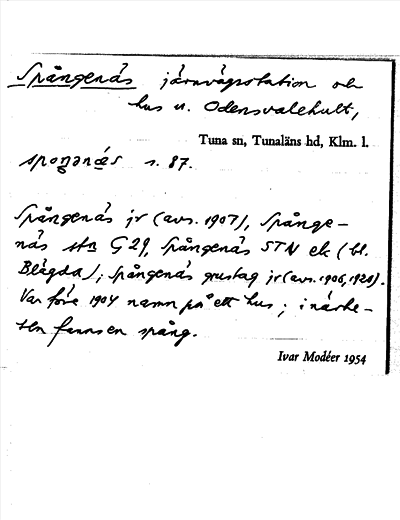 Spångenäs järnvägsstation och
hus u. Odensvalehult,
Tuna sn, Tunaläns hd, Klm. l.
spoŋənäs s. 87.
Spångenäs jr (avs. 1907), Spånge-
näs stn G 29, Spångenäs STN ek (bl.
Blägda); Spångenäs grustag jr (avs. 1906, 1920).
Var före 1904 namn på ett hus; i närhe-
ten fanns en spång.
Ivar Modéer 1954